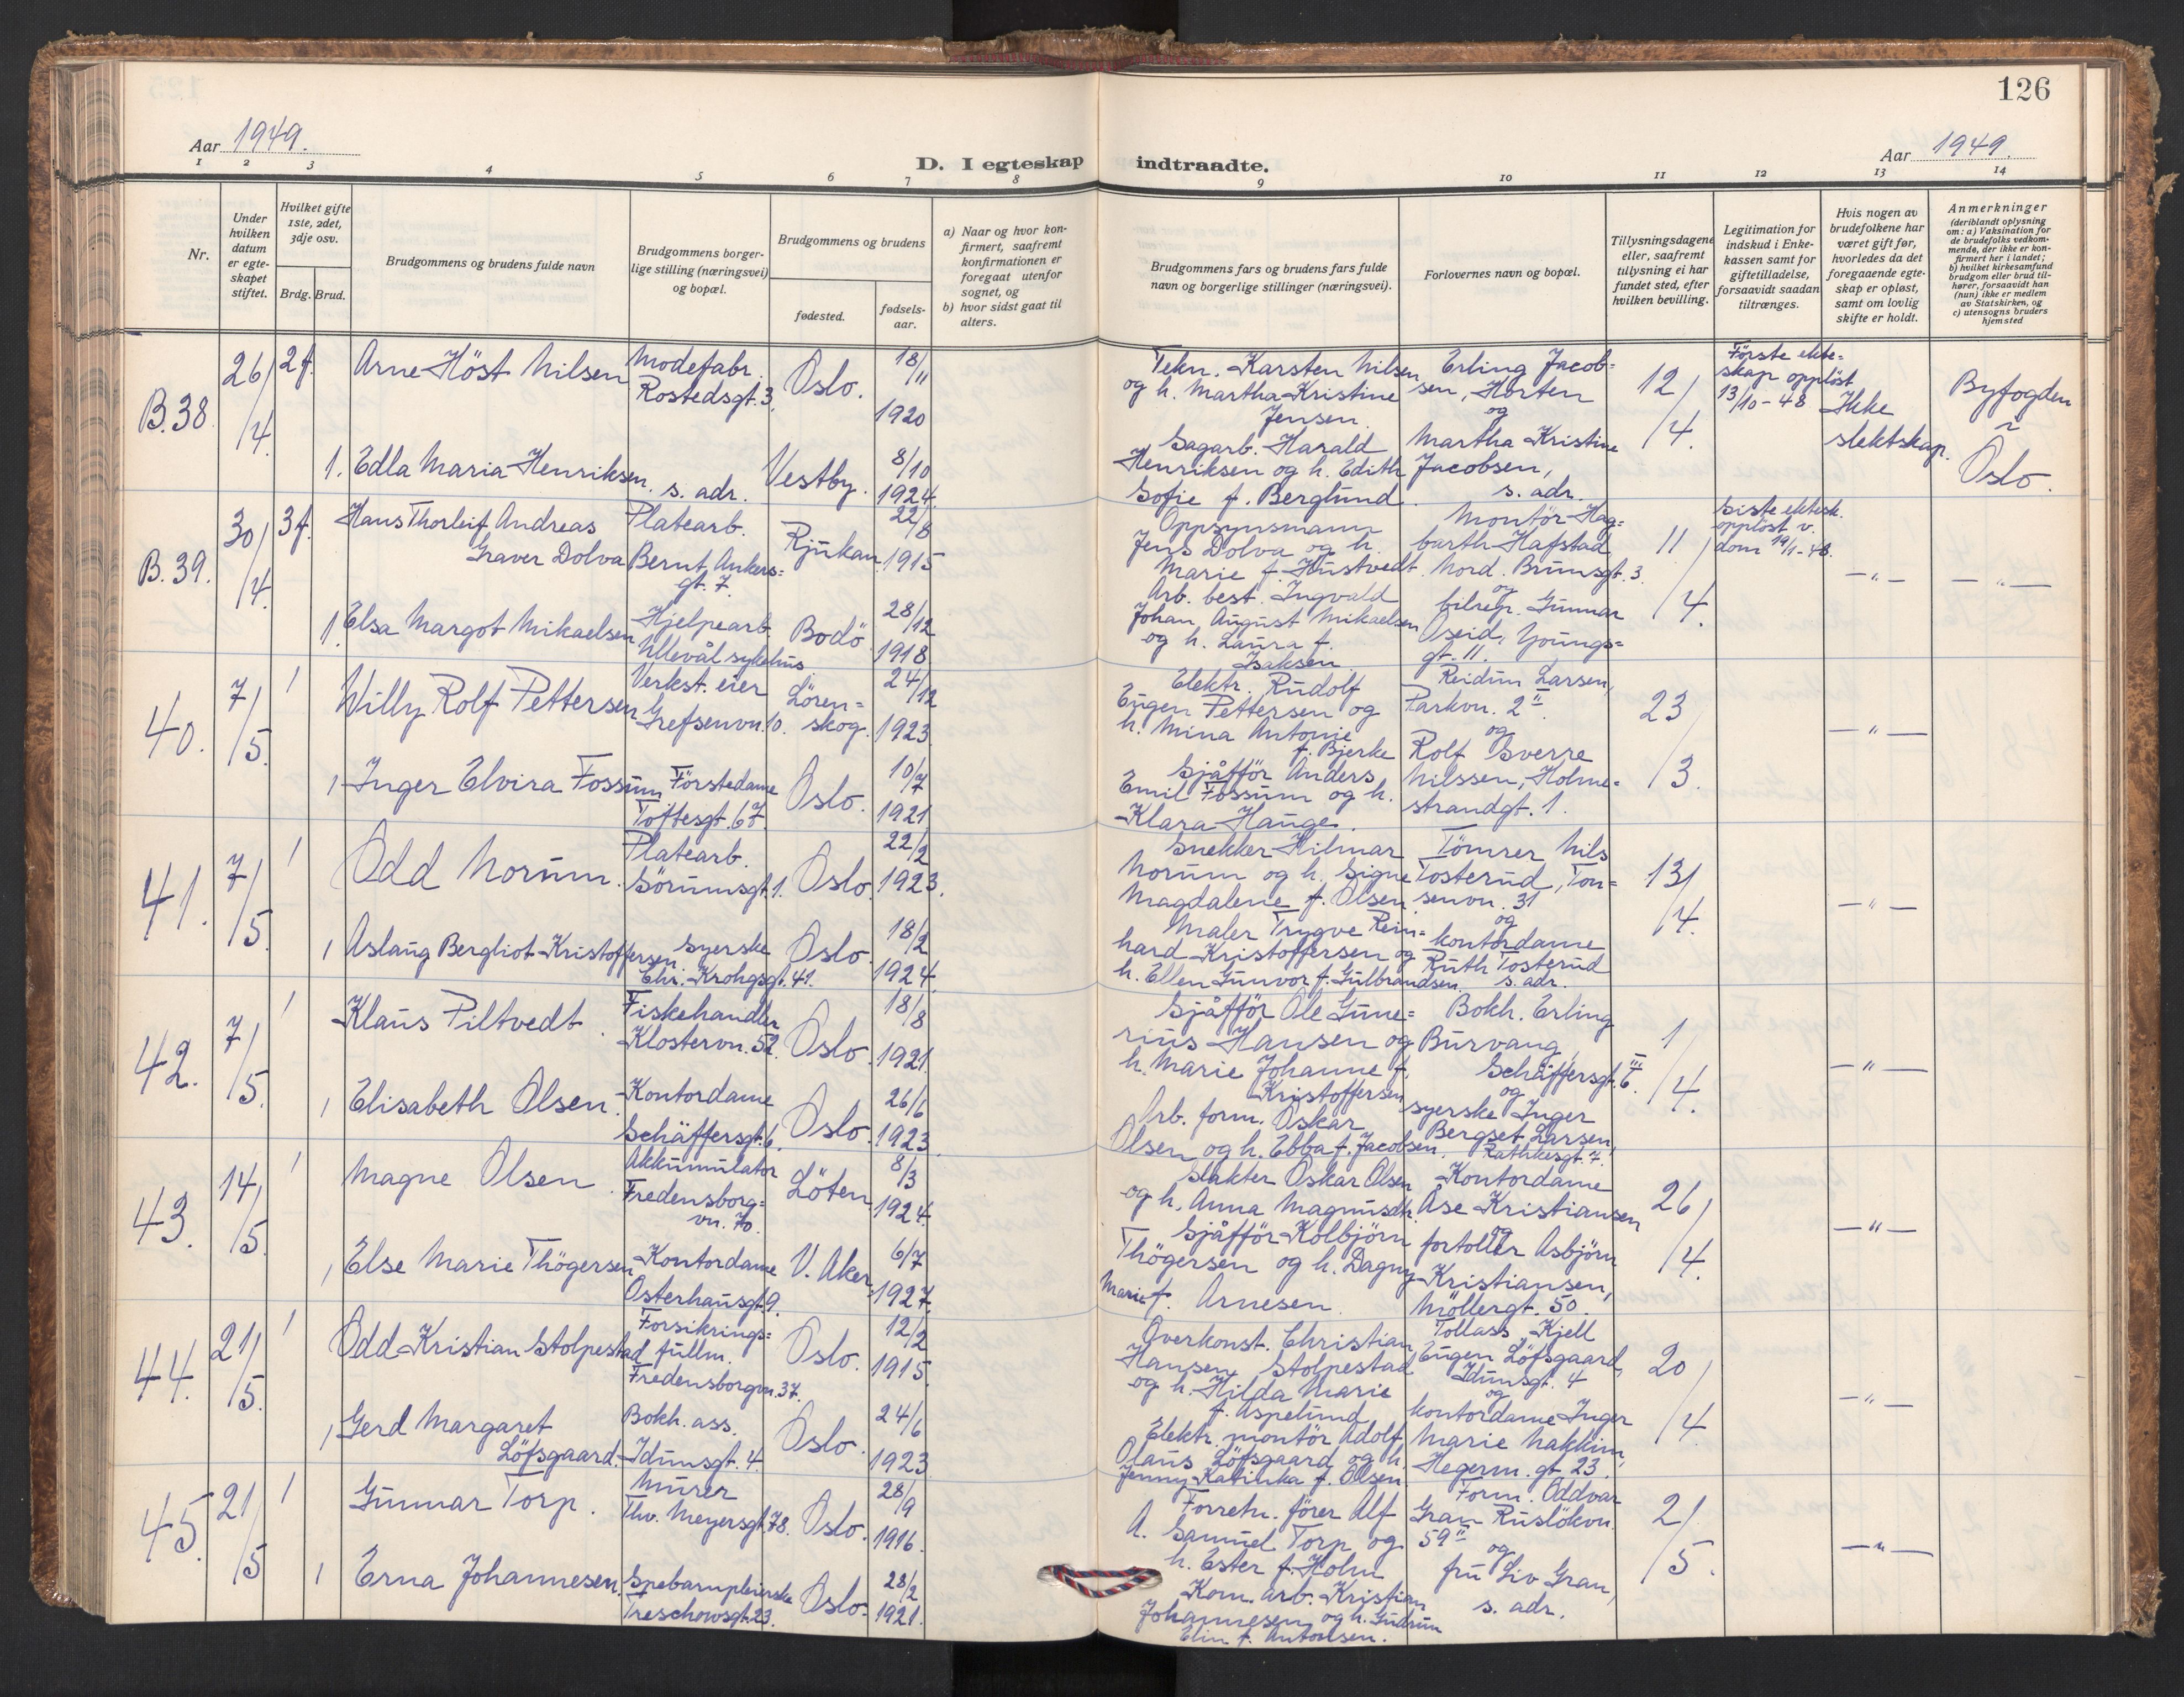 126
Aar 1949.
D. I egteskap indtraadte.
Aar 1949.
1 2 3 4 5 6 7 8 9 10 11 12 13 14
Nr.
Under hvilken datum er egteskapet stiftet.
Hvilket gifte 1ste, 2det, 3dje osv.
Brdg. Brud.
Brudgommens og brudens fulde navn
Brudgommens borgerlige stilling (næringsvei) og bopæl.
Brudgommens og brudens
fødested.
fødselsaar.
a) Naar og hvor konfirmert, saafremt konfirmationen er foregaat utenfor sognet, og
b) hvor sidst gaat til alters.
Brudgommens fars og brudens fars fulde navn og borgerlige stillinger (næringsvei).
Forlovernes navn og bopæl.
Tillysningsdagene eller, saafremt tillysning ei har fundet sted, efter hvilken bevilling.
Legitimation for indskud i Enkekassen samt for giftetilladelse, forsaavidt saadan tiltrænges.
Hvis nogen av brudefolkene har været gift før, hvorledes da det foregaaende egteskap er opløst, samt om lovlig skifte er holdt.
Anmerkninger
(deriblandt oplysning om: a) Vaksination for de brudefolks vedkommende, der ikke er konfirmert her i landet; b) hvilket kirkesamfund brudgom eller brud tilhører, forsaavidt han (hun) ikke er medlem av Statskirken, og c) utensogns bruders hjemsted
B.38. 26/4. 2f.
Arne Höst Nilsen
Modefabr.
Rostedsgt. 3.
Oslo.
18/11
1920
Tekn. Karsten Nilsen
og h. Martha Kristine
Jensen.
Erling Jacob=
sen, Horten
og
Martha Kristine
Jacobsen,
s. adr.
12/4.
Förste ekte=
skap opplöst
13/10-48
Ikke
slektskap.
Byfogden
i
Oslo.
1. Edla Maria Henriksen.
s. adr.
Vestby.
8/10
1924.
Sagarb. Harald
Henriksen og h. Edith
Sofie f. Berglund.
B.39. 30/4. 3f.
Hans Thorleif Andreas
Graver Dolva
Platearb.
Bernt Ankers=
gt. 7.
Rjukan
22/8
1915
Oppsynsmann
Jens Dolva og h.
Marie f. Hustvedt.
Montör Hag=
barth Hafstad,
Nord. Brunsgt. 3.
og
bilrep. Gunnar
Oseid, Youngs=
gt. 11.
11/4.
Siste ektesk.
opplöst v.
dom 19/1-48.
—"—
—"—
1. Elsa Margot Mikaelsen
Hjelpearb.
Ullevål sykehus
Bodö
28/12
1918
Arb. best. Ingvald
Johan August Mikaelsen
og h. Laura f.
Isaksen.
40. 7/5. 1
Willy Rolf Pettersen
Verkst. eier
Grefsenvn. 10.
Lören=
skog.
24/12
1923
Elektr. Rudolf
Eugen Pettersen og
h. Mina Antonie
f. Bjerke
Reidun Larsen,
Parkvn. 2 II.
og
Rolf Sverre
Nilssen, Holme=
strandgt. 1.
23/3.
—"—
1 Inger Elvira Fossum
Förstedame
Toftesgt. 67.
Oslo.
10/7
1921
Sjåfför Anders
Emil Fossum og h.
Klara Hauge.
41. 7/5. 1
Odd Norum.
Platearb.
Sörumsgt. 1.
Oslo
22/2
1923.
Snekker Hilmar
Norum og h. Signe
Magdalene f. Olsen
Tömrer Nils
Tosterud, Ton=
senvn. 31
og
kontordame
Ruth Tosterud
s. adr.
13/4.
—"—
1 Aslaug Bergliot Kristoffersen
Syerske
Chr. Krohgsgt. 41.
Oslo.
18/2
1924.
Maler Trygve Rein=
hard Kristoffersen og
h. Ellen Gunvor f. Gulbrandsen.
42. 7/5. 1
Klaus Piltvedt.
Fiskehandler
Klostervn. 52.
Oslo.
18/8
1921.
Sjåfför Ole Gune=
rius Hansen og
h. Marie Johanne f.
Kristoffersen
Bokh. Erling
Burvang,
Schäffersgt. 6 III.
og
syerske Inger
Bergset Larsen,
Rathkesgt. 7.
1/4.
—"—
1 Elisabeth Olsen.
Kontordame
Schäffersgt. 6.
Oslo.
26/6
1923
Arb. form. Oskar
Olsen og h. Ebba f. Jacobsen.
43. 14/5. 1
Magne Olsen.
Akkumulator
Fredensborg=
vn. 70.
Löten
8/3
1924.
Slakter Oskar Olsen
og h. Anna Magnusdtr.
Kontordame
Åse Kristiansen
og
fortoller Asbjörn
Kristiansen,
Möllergt. 50.
26/4.
—"—
1 Else Marie Thögersen
Kontordame
Osterhausgt. 9.
V. Aker
6/7
1927.
Sjåfför Kolbjörn
Thögersen og h. Dagny
Marie f. Arnesen.
44. 21/5. 1
Odd Kristian Stolpestad
Forsikrings=
fullm.
Fredensborgvn. 37.
Oslo.
12/2
1915.
Overkonst. Christian
Hansen Stolpestad
og h. Hilda Marie
f. Aspelund
Tollass. Kjell
Eugen Löfsgaard,
Idunsgt. 4
og
kontordame Inger
Marie Nakkim,
Hegerm. gt. 23.
20/4.
—"—
1 Gerd Margaret
Löfsgaard.
Bokh. ass.
Idunsgt. 4.
Oslo.
24/6
1923
Elektr. montör Adolf
Olaus Löfsgaard og h.
Jenny Katinka f. Olsen.
45. 21/5 1
Gunnar Torp.
Murer
Thv. Meyersgt. 78.
Oslo.
28/9
1916.
Forretn. förer Alf
A. Samuel Torp og
h. Ester f. Holm
Form. Oddvar
Gran Ruslökvn.
59 II
og
fru Liv Gran,
s. adr.
2/5.
—"—
1 Erna Johannesen.
Spebarnpleierske
Treschowsgt. 23.
Oslo.
28/2
1921.
Kom. arb. Kristian
Johannesen og h. Gudrun
Elin f. Antonsen.